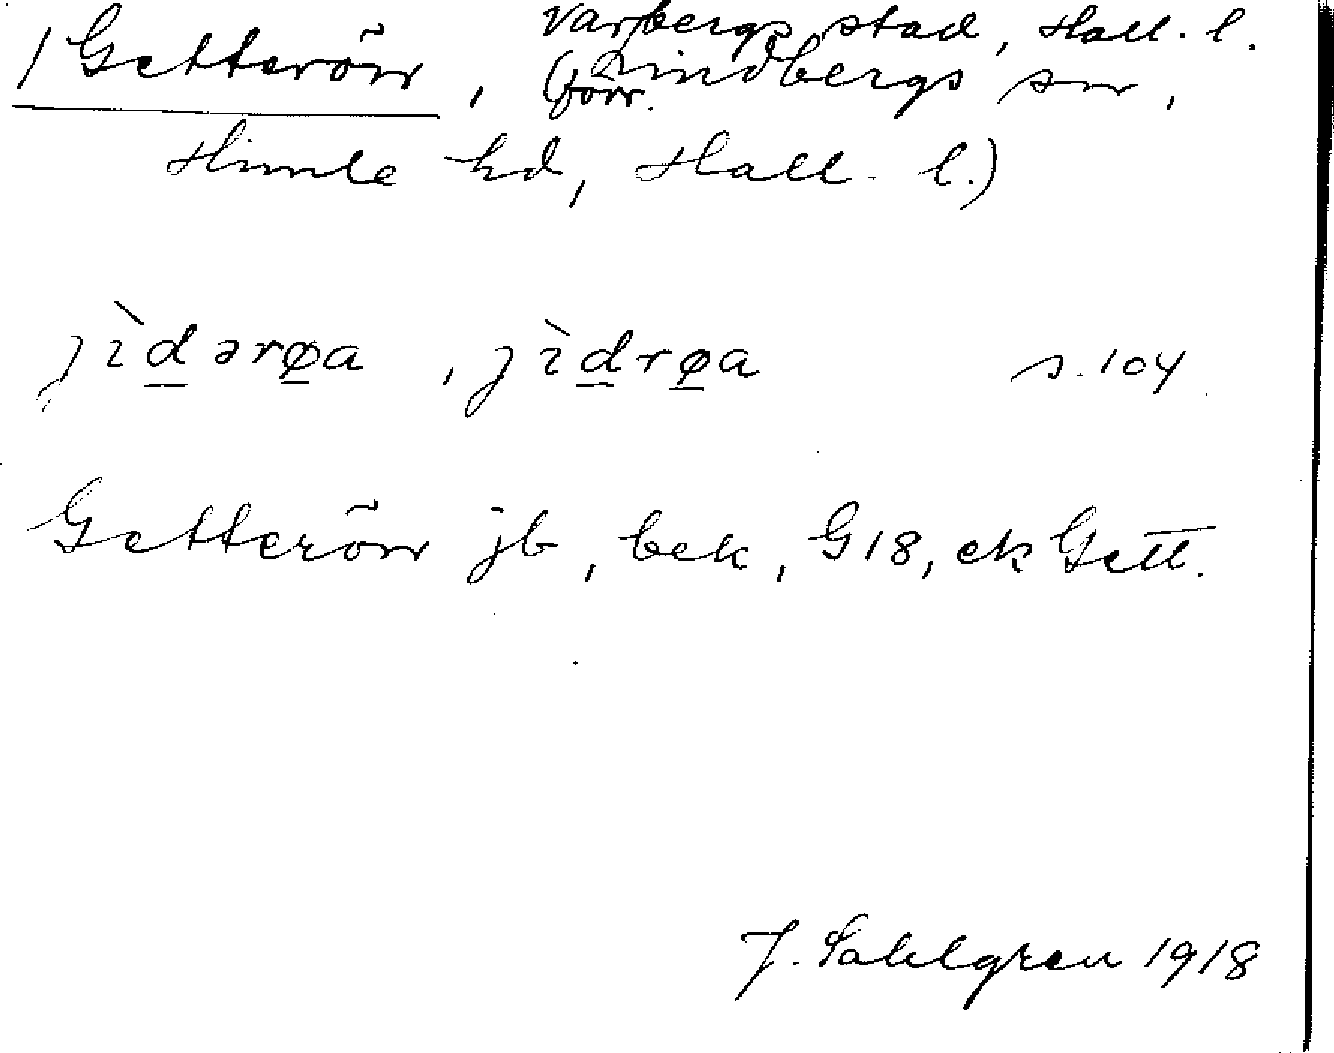 / Getterön, Varbergs stad, Hall. l.
(förr. Lindbergs sn,
Himle hd, Hall. l.)
jìdərøa, jìdrøa s. 104
Getterön jb, bek, G18, ek Gett.
J. Sahlgren 1918